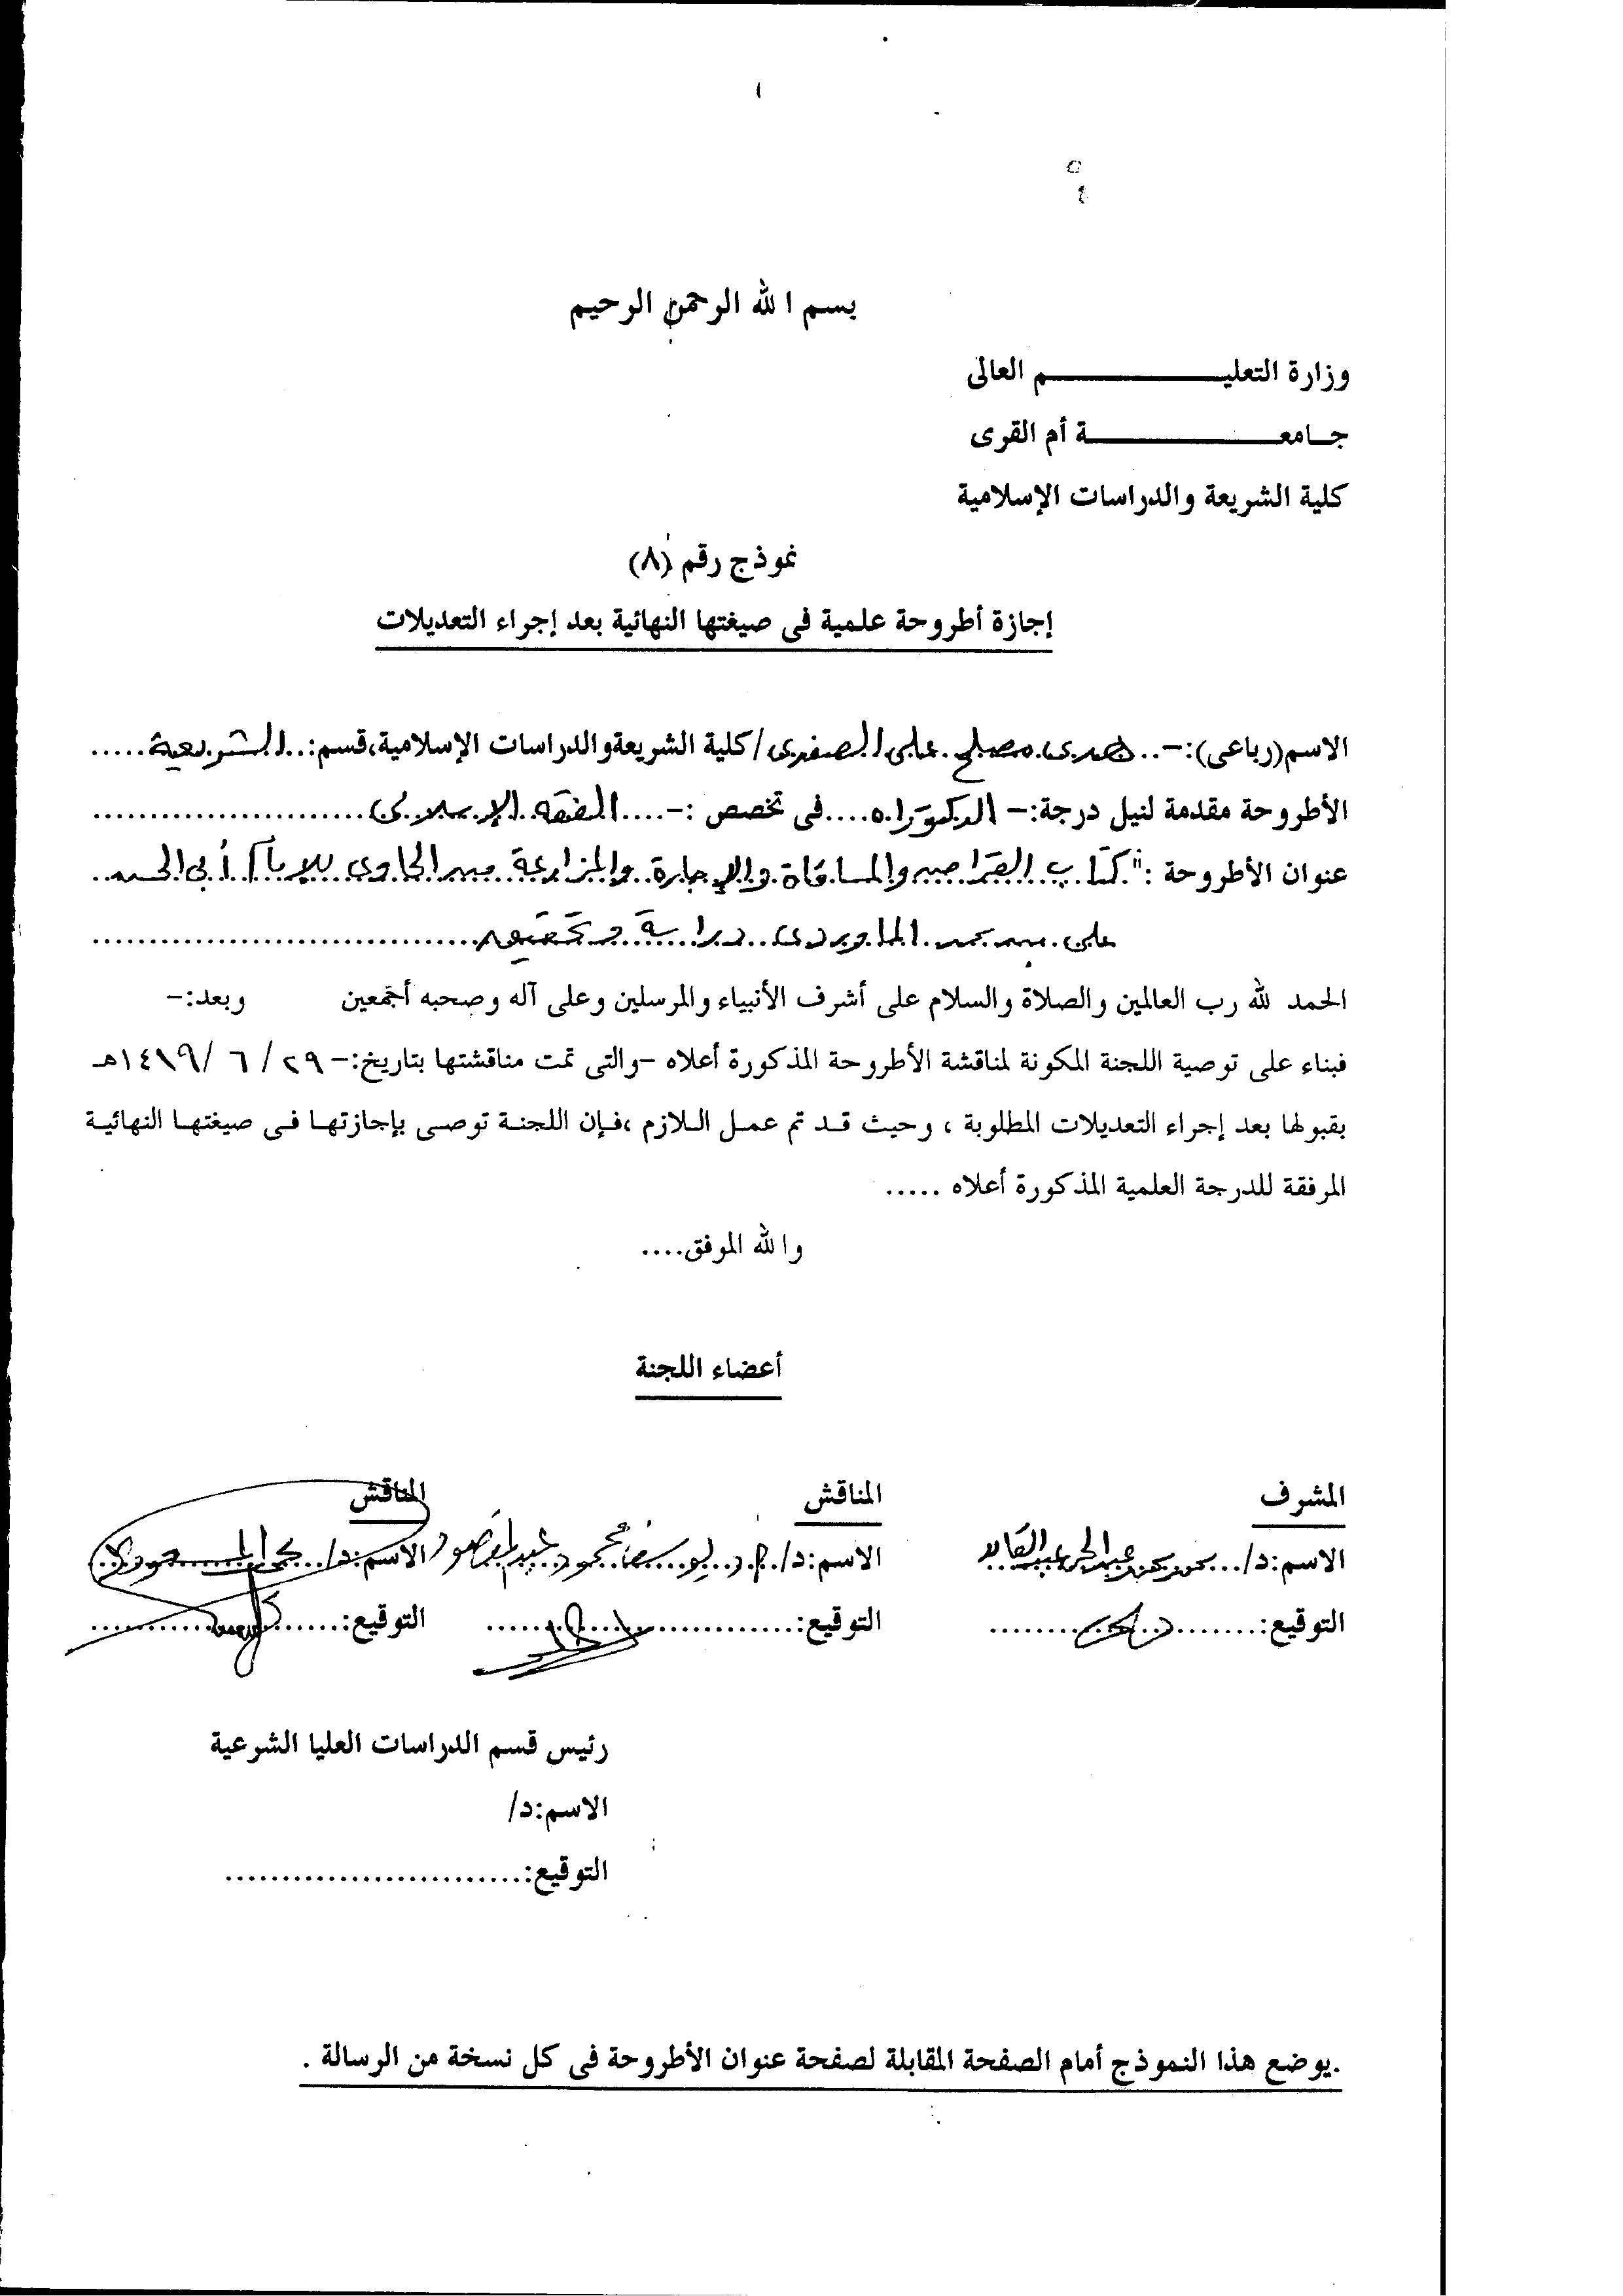 بسم الله الرحمن الرحيم
وزارة التعليـــــــــــــم العالى
جـامعـــــــــــــة أم القرى
كلية الشريعة والدراسات الإسلامية
نموذج رقم (٨)
إجازة أطروحة علمية فى صيغتها النهائية بعد إجراء التعديلات
الاسم(رباعى):-.. مصلح على الصفدى/كلية الشريعة والدراسات الإسلامية،قسم:..الشريعة.....
الأطروحة مقدمة لنيل درجة:- الدكتوراه....فى تخصص :-....الفقه الإسلامى........................
عنوان الأطروحة :"كتاب القراض والمساقاة والإجارة والمزارعة من الحاوى للإمام أبى الحسن..
على بن محمد الماوردى دراسة وتحقيق..................................
الحمد لله رب العالمين والصلاة والسلام على أشرف الأنبياء والمرسلين وعلى آله وصحبه أجمعين وبعد:-
فبناء على توصية اللجنة المكونة لمناقشة الأطروحة المذكورة أعلاه -والتى تمت مناقشتها بتاريخ:- ٢٩ / ٦ /١٤١٩هـ
بقبولها بعد إجراء التعديلات المطلوبة ، وحيث قـد تم عمـل الـلازم ،فـإن اللجنـة توصـى بإجازتهـا فـى صيغتهـا النهائيـة
المرفقة للدرجة العلمية المذكورة أعلاه .....
والله الموفق....
أعضاء اللجنة
المشرف المناقش المناقش
الاسم:د/... عبد الاسم:د/ا.د. يوسف محمود عبد المقصود الاسم:د/...
التوقيع:........ التوقيع:........ التوقيع:........
رئيس قسم الدراسات العليا الشرعية
الاسم:د/
التوقيع:...........................
.يوضع هذا النموذج أمام الصفحة المقابلة لصفحة عنوان الأطروحة فى كل نسخة من الرسالة .